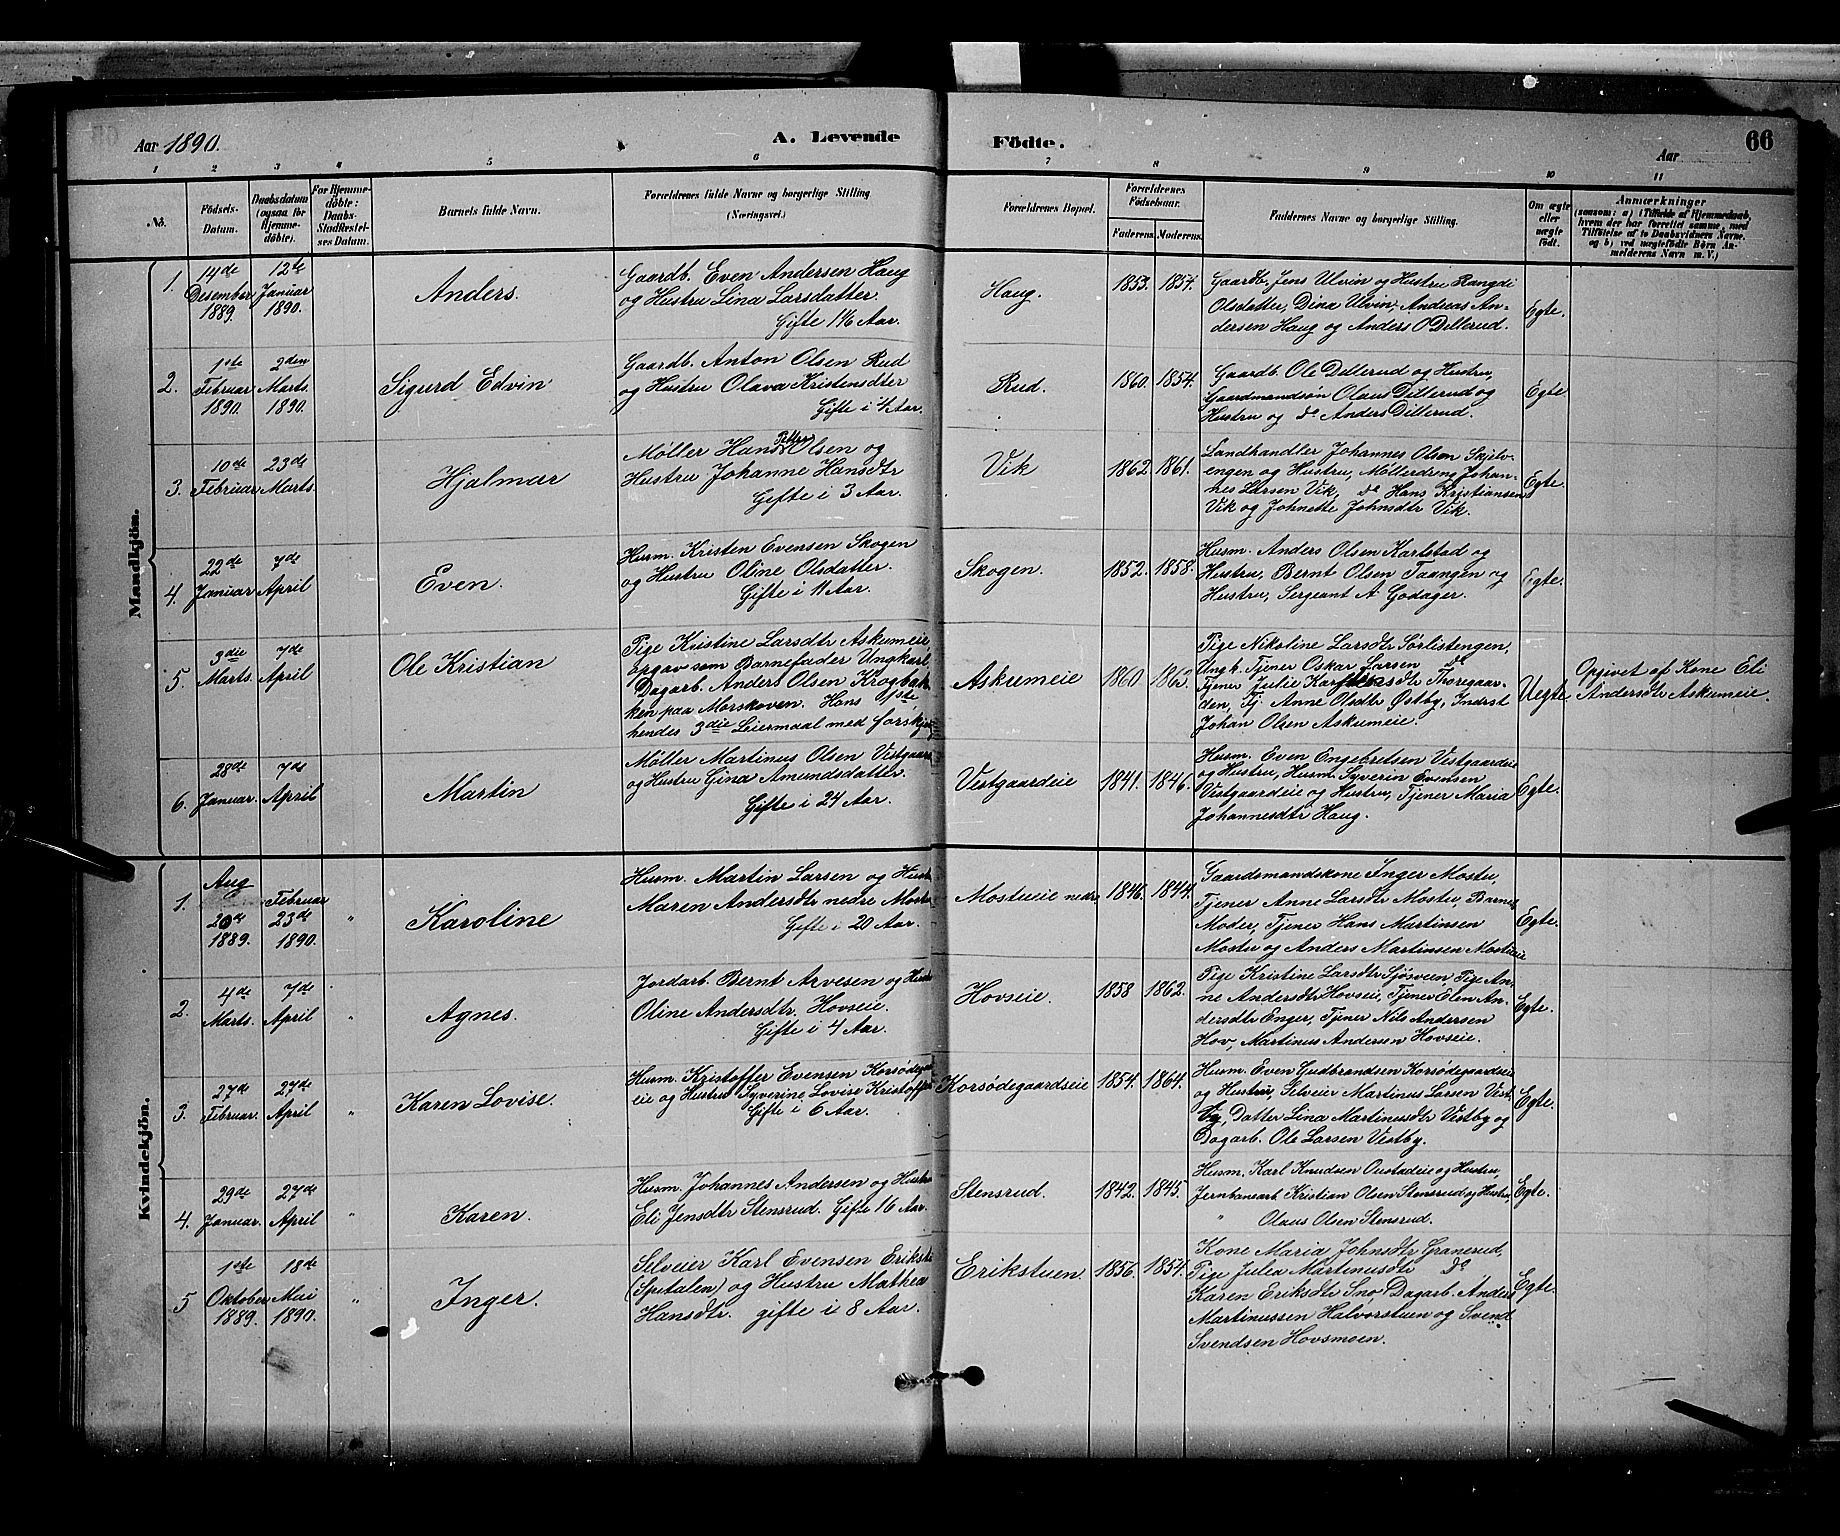 Aar 1890.
A. Levende
Födte.
Aar
66
1 2 3 4 5 6 7 8 9 10 11
No.
Födsels-
Datum.
Daabsdatum
(ogsaa for
Hjemme-
døbte).
For Hjemme-
døbte:
Daabs-
Stadfæstel-
ses Datum.
Barnets fulde Navn.
Forældrenes fulde Navne og borgerlige Stilling
(Næringsvei.)
Forældrenes Bopæl.
Forældrenes
Födselsaar.
Faderens. Moderens.
Faddernes Navne og borgerlige Stilling.
Om ægte
eller
uægte
født.
Anmærkninger
(saasom: a) i Tilfælde af Hjemmedaab,
hvem der har forrettet samme, med
Tilføielse af to Daabsvidners Navne,
og b) ved uægtefødte Børn An-
melderens Navn m. V.)
Mandkjön.
1.
14de
Desember
1889.
12te
Januar
1890.
Anders.
Gaardb. Even Andersen Haug
og Hustru Lina Larsdatter.
Gifte 1½ Aar.
Haug.
1853. 1854.
Gaardb. Jens Ulvin og Hustru Rangdi
Olsdatter, Dina Ulvin, Andreas An-
dersen Haug og Anders O Dillerud.
Egte.
2.
1ste
Februar
1890.
2den
Marts.
1890.
Sigurd Edvin
Gaardb. Anton Olsen Rud
og Hustru Olava Kristensdter
Gifte i 4 Aar.
Rud.
1860. 1854.
Gaardb. Ole Dillerud og Hustru,
Gaardmandsøn Olaus Dillerud og
Hustru og do Anders Dillerud.
Egte
3.
10de
Februar
23de
Marts.
Hjalmar
Møller Hans Petter Olsen og
Hustru Johanne Hansdtr
Gifte i 3 Aar.
Vik
1862 1861.
Landhandler Johannes Olsen Skjelv-
engen og Hustru, Mølledreng Johan-
nes Larsen Vik, do Hans Kristiansen
Vik og Johnette Johnsdtr Vik.
Egte.
4.
22de
Januar
7de
April
Even.
Husm. Kristen Evensen Skogen
og Hustru Oline Olsdatter.
Gifte i 11 Aar.
Skogen.
1852. 1858.
Husm. Anders Olsen Karlstad og
Hustru, Bernt Olsen Taangen og
Hustru, Sergeant A Godager.
Egte.
5.
3die
Marts.
7de
April
Ole Kristian
Pige Kristine Larsdtr Askumeie,
opgav som Barnefader Ungkarl,
Dagarb. Anders Olsen Krogbak-
ken paa Morskoven. Hans 1ste,
hendes 3die Leiermaal med forskj
Askumeie
1860 1863.
Pige Nikoline Larsdtr Sørlistengen,
Ungk. Tjener Oskar Larsen do
Tjener Julie Karstensdtr Thoregaar-
den, Tj. Anne Olsdtr Østby, Inderst
Johan Olsen Askumeie.
Uegte
Opgivet af Kone Eli
Andersdtr Askumeie.
6.
28de
Januar.
7de
April
Martin
Møller Martinus Olsen Vestgaard
og Hustru Gina Amundsdatter.
Gifte i 24 Aar.
Vestgaardeie
1841. 1846.
Husm. Even Engebretsen Vestgaardeie
og Hustru, Husm. Syverin Evensen
Vestgaardeie og Hustru, Tjener Maria
Johannesdtr Haug.
Egte.
Kvindekjön.
1.
Aug
20de
1889.
Februar
23de
1890.
"
Karoline
Husm. Martin Larsen og Hustru
Maren Andersdtr nedre Mostu
Gifte i 20 Aar.
Mostueie nedre
1846. 1844.
Gaardsmandskone Inger Mostu,
Tjener Anne Larsdtr Mostu, Barnets
Moder, Tjener Hans Martinsen
Mostu og Anders Martinsen Mostueie
Egte.
2.
4de
Marts.
7de
April
"
Agnes.
Jordarb. Bernt Arvesen og Hustru
Oline Andersdtr, Hovseie.
Gifte i 4 Aar.
Hovseie.
1858 1862.
Pige Kristine Larsdtr Sjøsveen, Pige An-
ne Andersdtr Hovseie, Tjener Elen An-
dersdtr Enger, Tjener Nils Andersen
Hov, Martinus Andersen Hovseie.
Egte.
3.
27de
Februar.
27de
April
"
Karen Lovise.
Husm. Kristoffer Evensen Korsødegaards
eie og Hustru Syverine Lovise Kristoffers
Gifte i 6 Aar.
Korsødegaardseie
1854. 1864.
Husm. Even Gudbrandsen Korsødegaardseie
og Hustru, Selveier Martinus Larsen Vest-
by, Datter Lina Martinusdtr Vestby og
Dagarb. Ole Larsen Vestby.
Egte.
4.
29de
Januar.
27de
April
"
Karen.
Husm. Johannes Andersen og Hustru
Eli Jensdtr Stensrud. Gifte 16 Aar.
Stensrud.
1842. 1845.
Husm. Karl Knudsen Oustadeie og Hustru
Jernbanearb. Kristian Olsen Stensrud og Hustru,
" Olaus Olsen Stensrud.
Egte.
5
1ste
Oktober
1889.
18de
Mai
1890.
"
Inger.
Selveier Karl Evensen Erikst
(Spitalen) og Hustru Mathea
Hansdtr. gifte i 8 Aar.
Erikstuen
1856. 1854.
Kone Maria Johnsdtr Granerud,
Pige Julia Martinusdtr Do
Karen Eriksdtr Sno Dagarb. Anders
Martinussen Halvorstuen og Svend
Svendsen Hovsmoen.
Egte.